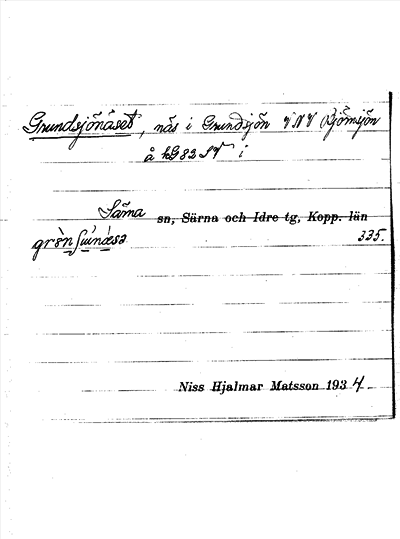 Grundsjönäset, näs i Grundsjön VNV Björnsjön
å kG 82 SV i
Särna sn, Särna och Idre tg, Kopp. län
335.
Niss Hjalmar Matsson 1934